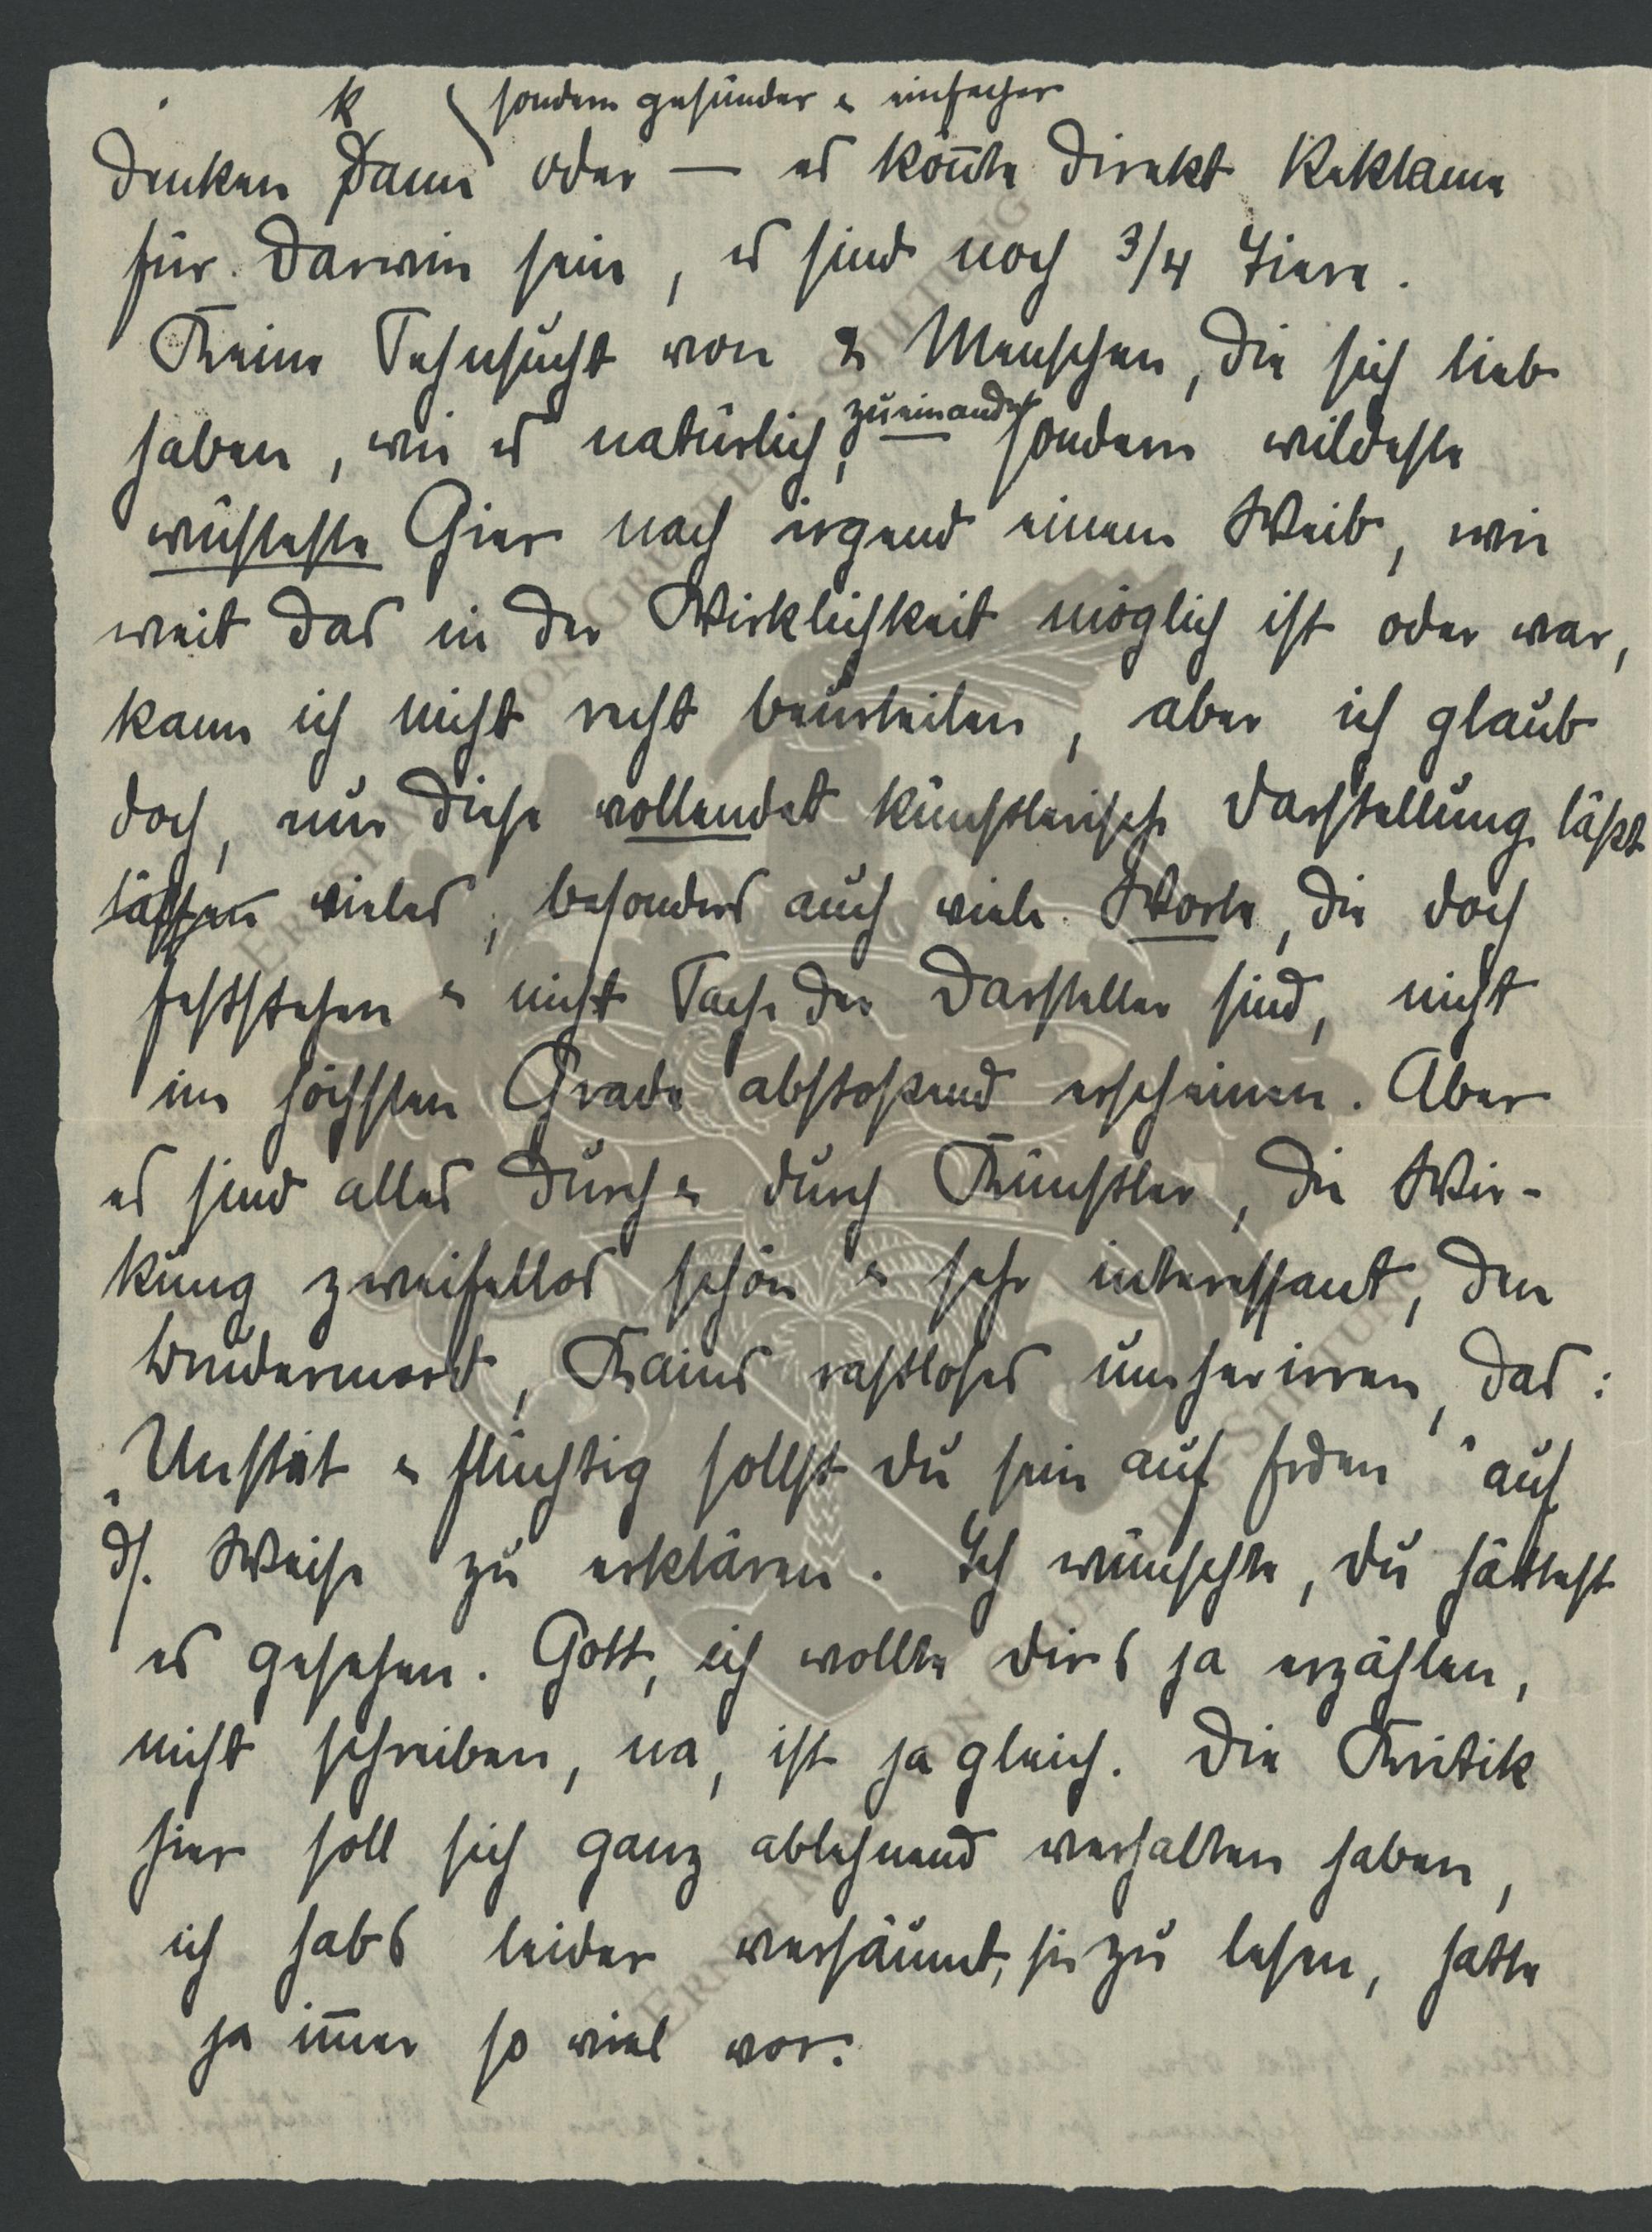 sondern gesünder & einfacher
denken kann oder — es kön̄te direkt Reklame
für Darwin sein, es sind noch 3/4 Tiere.
Keine Sehnsucht von 2 Menschen, die sich lieb
haben, wie es natürlich, zueinander sondern wildeste
wüsteste Gier nach irgend einem Weib, wie
weit das in der Wirklichkeit möglich ist oder war,
kann ich nicht recht beurteilen, aber ich glaub
doch, nur diese vollendet künstlerische Darstellung läßt
lassen vieles, besonders auch viele Worte, die doch
feststehen & nicht Sache der Darsteller sind, nicht
im höchsten Grade abstoßend erscheinen. Aber
es sind alles durch & durch Künstler, die Wir-
kung zweifellos schön & sehr interessant, den
Brudermord, Kains rastloses umherirren, das:
„Unstät & flüchtig sollst du sein auf Erden" auf
ds. Weise zu erklären. Ich wünschte, du hättest
es gesehen. Gott, ich wollte dirs ja erzählen,
nicht schreiben, na, ist ja gleich. Die Kritik
hier soll sich ganz ablehnend verhalten haben,
ich habs leider versäumt, sie zu lesen, hatte
ja im̄er so viel vor.
ERNST VON GRUNELIUS-STIFTUNG
ERNST VON GRUNELIUS-STIFTUNG